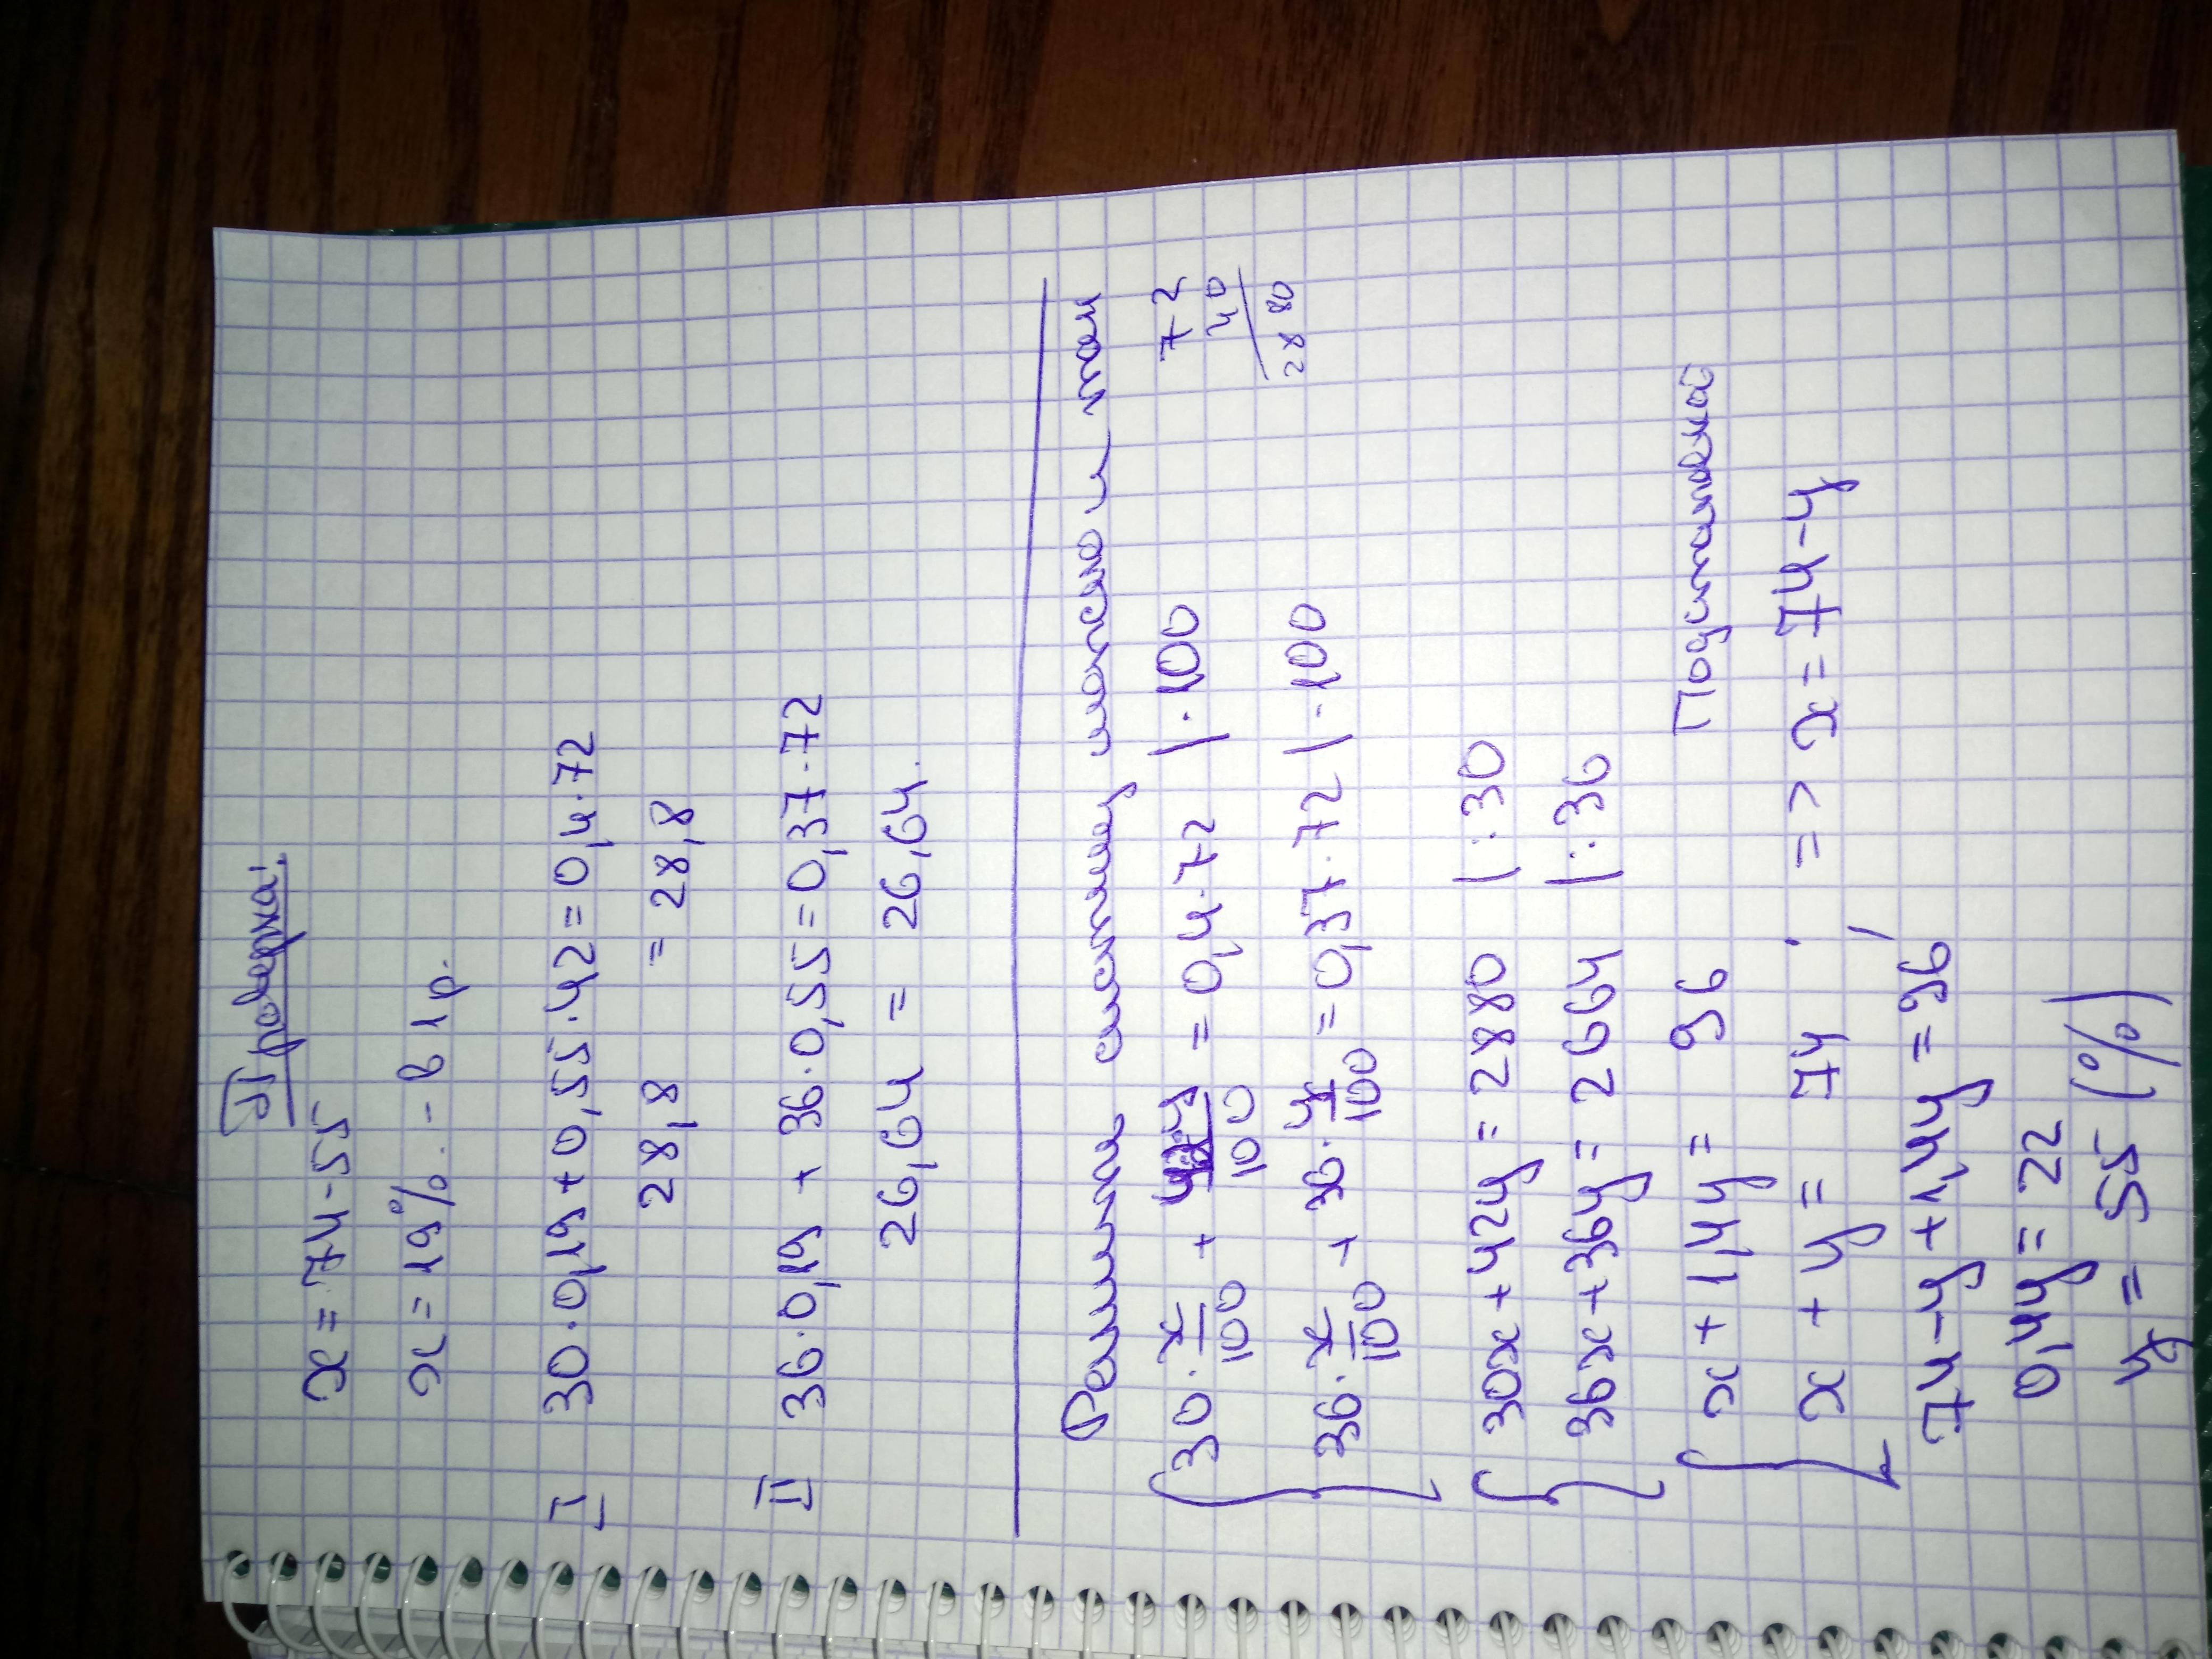 Проверка:
x = 74-55
x = 19% - в 1 р.
I 30·0,19+0,55·42=0,4·72
28,8 = 28,8
II 36·0,19 + 36·0,55=0,37·72
26,64 = 26,64.
Решить систему можно и так
30· x/100 + 42·y/100 = 0,4·72 |·100
72
40
2880
36· x/100 + 36· y/100 = 0,37·72 |·100
30x+42y = 2880 |:30
36x+36y = 2664 |:36
x + 1,4y = 96 Подстановкой
x + y = 74 => x = 74-y
74-y+1,4y = 96
0,4y = 22
y = 55 (%)